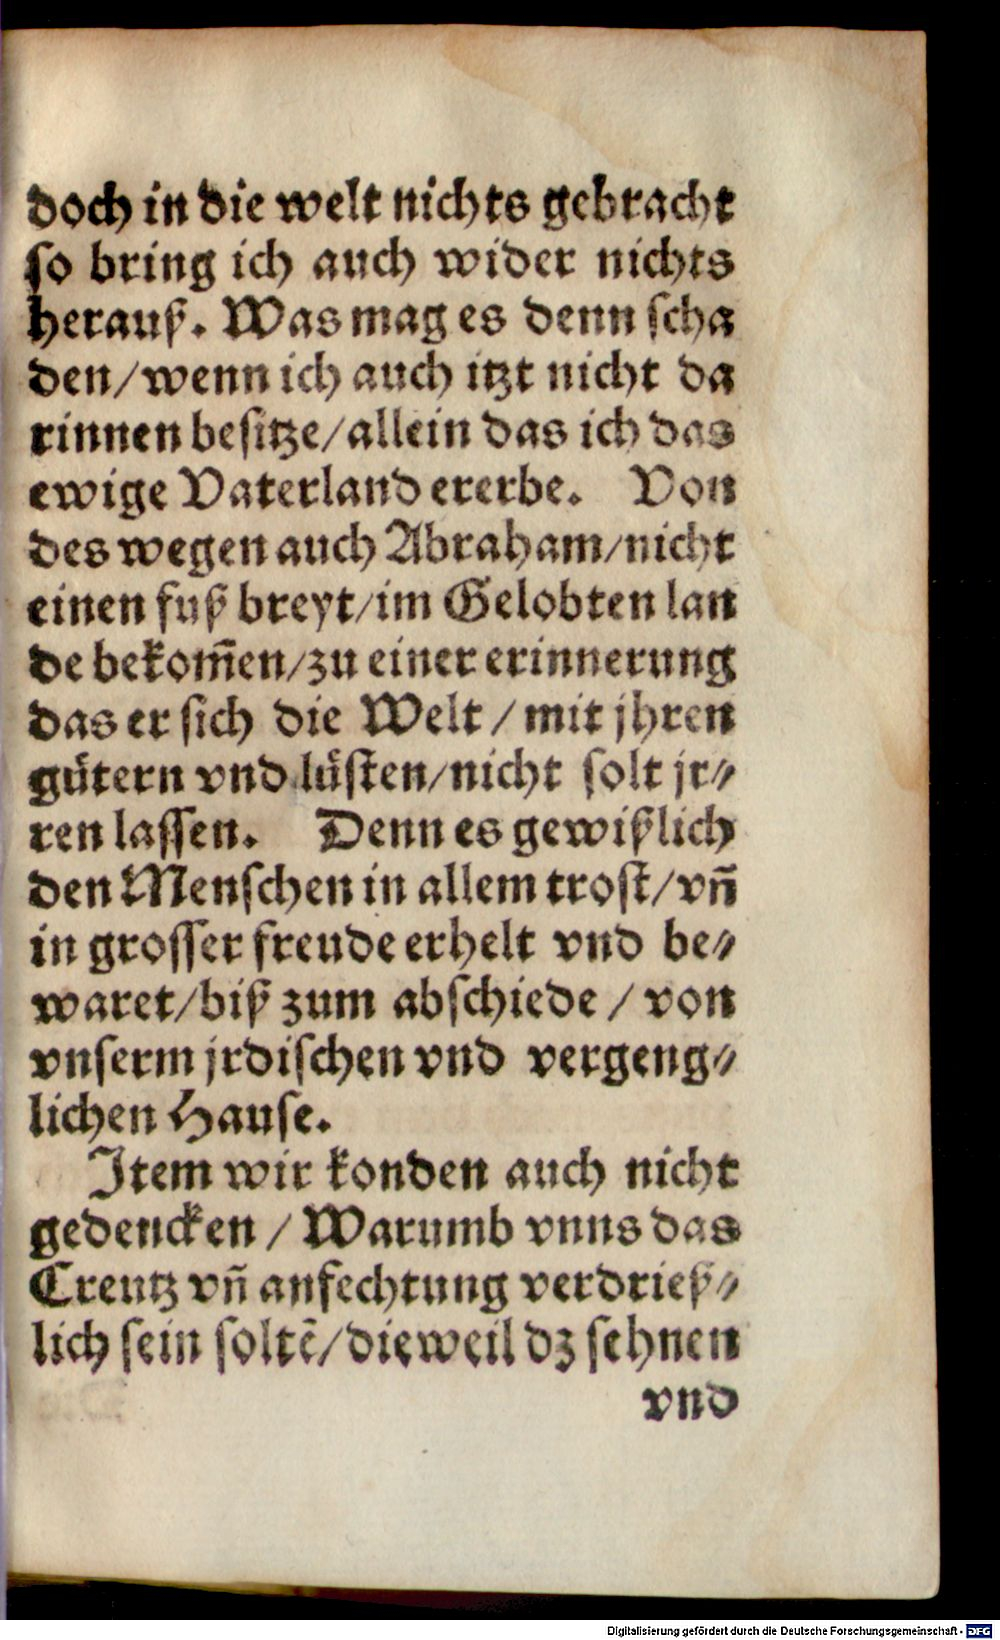 doch in die welt nichts gebracht
so bring ich auch wider nichts
herauß. Was mag es denn scha
den/wenn ich auch itzt nicht da
rinnen besitze/allein das ich das
ewige Vaterland ererbe. Von
des wegen auch Abraham/nicht
einen fuß breyt/im Gelobten lan
de bekom̃en/zu einer erinnerung
das er sich die Welt / mit jhren
gütern vnd lüsten/nicht solt jr⸗
ren lassen. Denn es gewißlich
den Menschen in allem trost/vñ
in grosser freude erhelt vnd be⸗
waret/biß zum abschiede / von
vnserm jrdischen vnd vergeng⸗
lichen Hause.
Item wir konden auch nicht
gedencken / Warumb vnns das
Creutz vñ anfechtung verdrieß⸗
lich sein soltẽ/dieweil dz sehnen
vnd
Digitalisierung gefördert durch die Deutsche Forschungsgemeinschaft - DFG